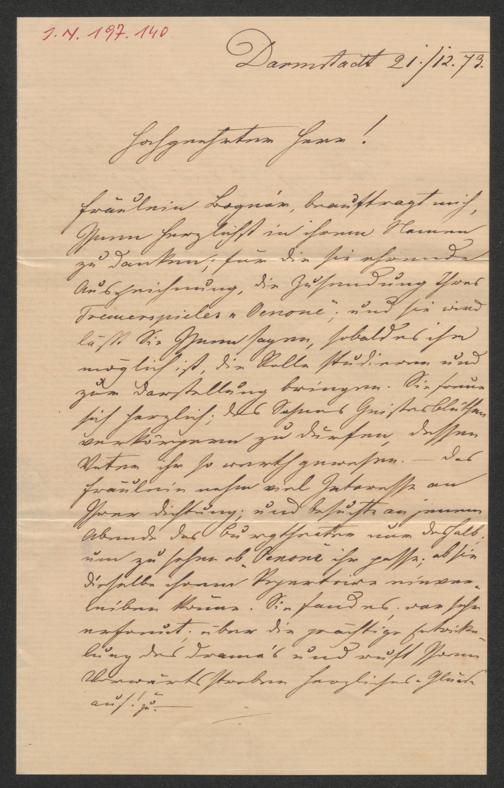 J. N. 197.140
Darmstadt 21./12. 73.
Hochgeehrter Herr!
Fräulein Bognár, beauftragt mich,
Ihnen herzlichst in ihrem Namen
zu danken; für die sie ehrende
Auszeichnung, die Zusendung Ihres
Trauerspieles „Oenone“; und sie
läßt Sie Ihnen sagen, sobald es ihr
möglich ist, die Rolle studieren und
zur Darstellung bringen. Sie freue
sich herzlich; des Sohnes Geistesblüthen
verkörpern zu dürfen, dessen
Vater ihr so werth gewesen. — Das
Fräulein nehme viel Interesse an
Ihrer Dichtung; und besuchte an jenem
Abende das Burgtheater nur deshalb,
um zu sehen ob „Oenone“ ihr passe; ob sie
dieselbe ihrem Repertoire einver-
leiben könne. Sie fand es, war sehr
erfreut, über die prächtige Entwick-
lung des Drama's und ruft Ihrem
Vorwärtsstreben herzliches „Glück
auf!“ zu. —